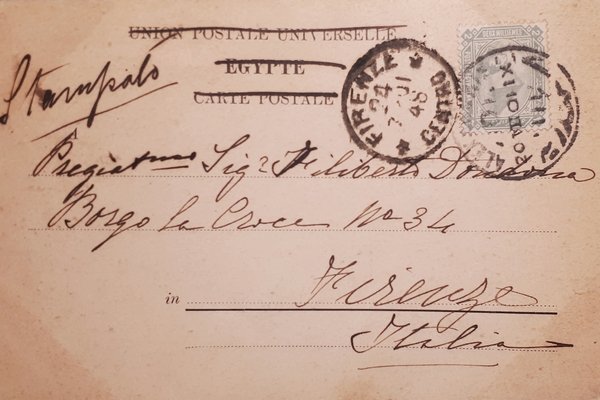 UNION POSTALE UNIVERSELLE
EGYPTE
CARTE POSTALE
Stampato
DEUX MILLIEMES
FIRENZE
CENTRO
24
48
XII
Sig.
Filiberto
Borgo la Croce No 34
in Firenze
Italia